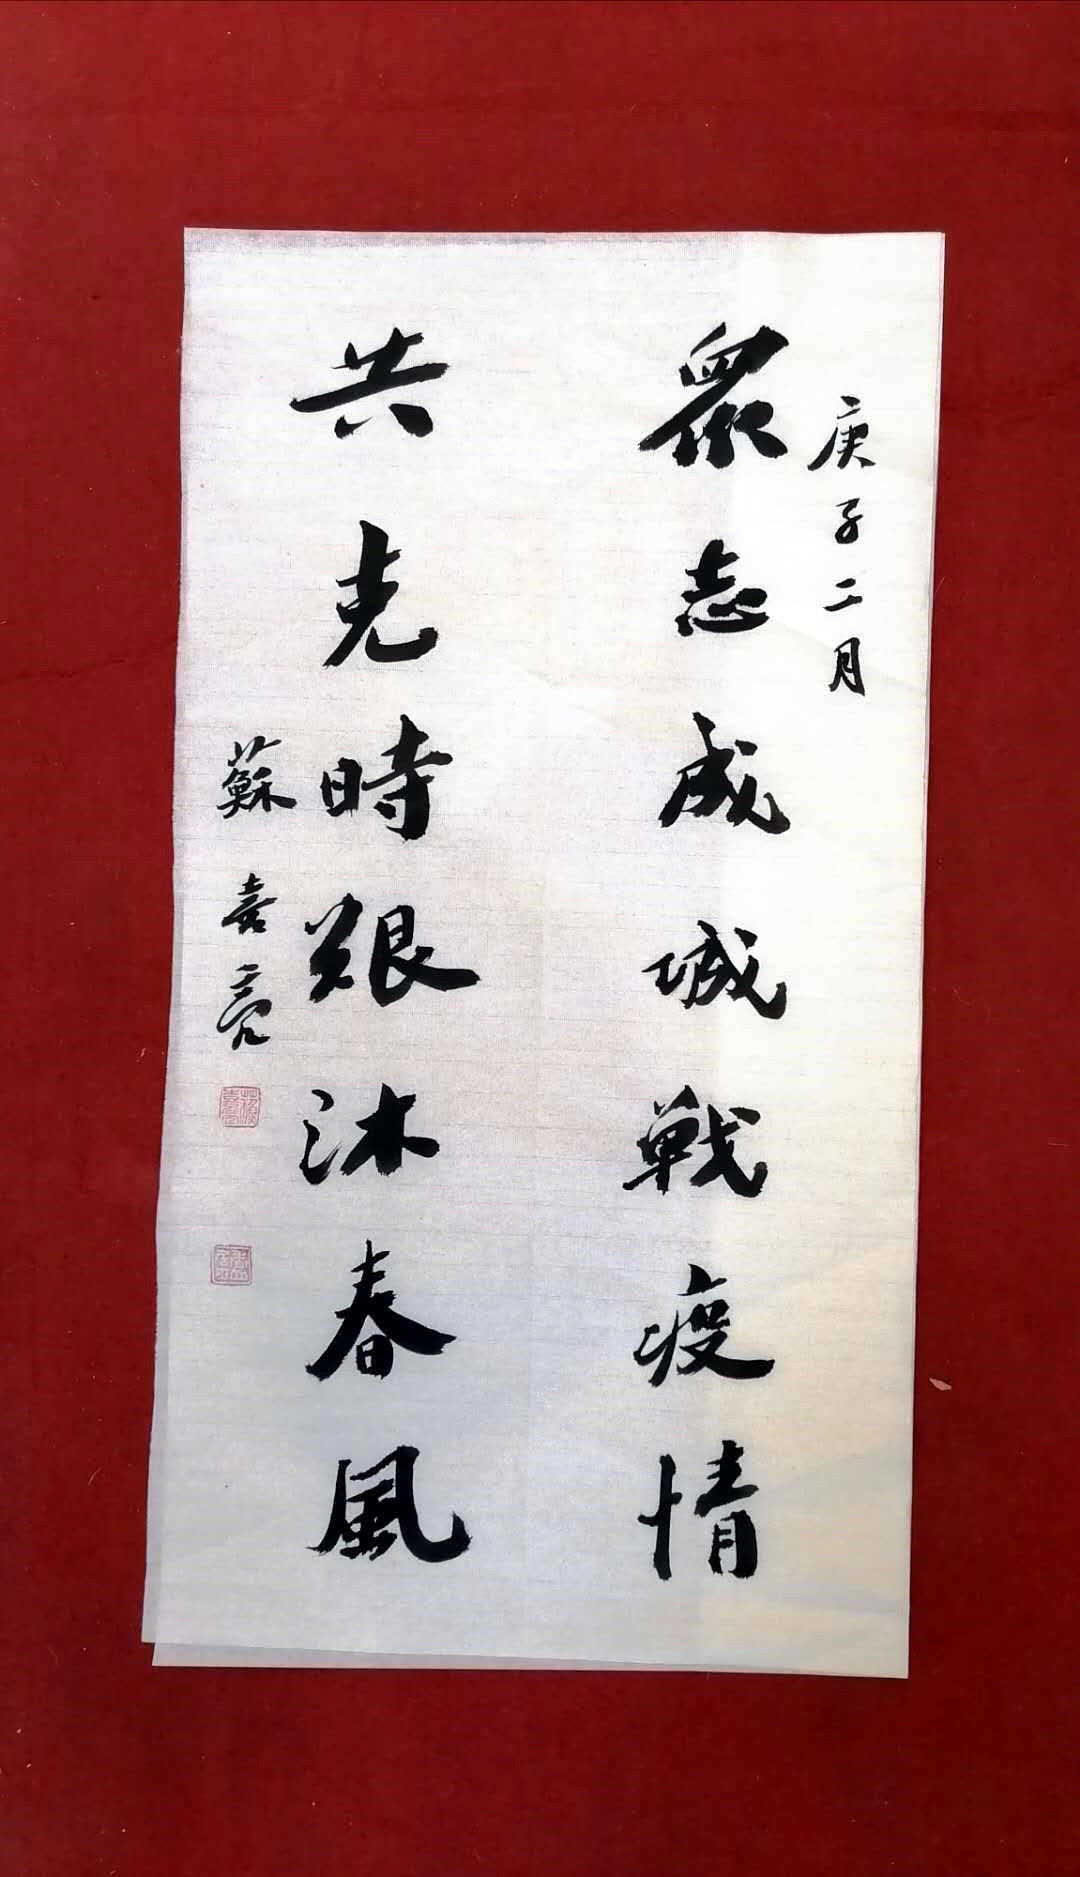 庚子二月
眾志成城戰疫情
共克時艱沐春風
蘇喜亮